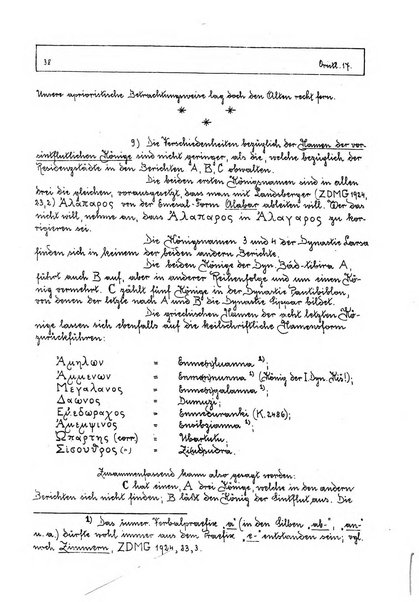 38 Orient. 17.
Unsere aprioristische Betrachtungsweise lag doch den Alten recht fern.
* * *
9) Die Verschiedenheiten bezüglich der Namen der vor-
sintflutlichen Könige sind nicht geringer, als die, welche bezüglich der
Residenzstädte in den Berichten A, B, C obwalten.
Die beiden ersten Königsnamen sind in allen
drei die gleichen, vorausgesetzt, dass man mit Landsberger (ZDMG 1924,
33,2) Ἀλάπαρος von der Emesal-Form Alabar ableiten will. Wer das
nicht will, nehme an, dass Ἀλαπαρος in Ἀλαγαρος zu kor-
rigieren sei.
Die Königsnamen 3 und 4 der Dynastie Larsa
finden sich in keinem der beiden andern Berichte.
Die beiden Könige der Dyn. Bád-tibira A,
führt auch B auf, aber in anderer Reihenfolge und um einen Kö-
nig vermehrt. C zählt fünf Könige in der Dynastie Pautibiblon,
von denen der letzte nach A und B die Dynastie Sippar bildet.
Die griechischen Namen der acht letzten Kö-
nige lassen sich ebenfalls auf die keilschriftliche Namensform
zurückführen:
Ἀμηλων = Enmenluanna 1);
Ἀμμενων = Enmenunna 1) (König der I. Dyn. Kiš!);
Μεγαλανος = Enmengalanna 1);
Δαωνος = Dumuzi;
Εὐεδωραχος = Enmeduranki (K. 2486);
Ἀμεμψινος = Ensibzianna 1);
Ὠπαρτης (corr) = Ubartutu;
Σισουθρος (-) = Ziudsudra.
Zusammenfassend kann also gesagt werden:
C hat einen, A drei Könige, welche in den andern
Berichten sich nicht finden; B läßt den König der Sintflut aus. Die
1) Das inner. Verbalpraefix „a" (in den Silben „ab-", „an-"
u.a.) dürfte wohl immer aus dem Praefix „e-" entstanden sein; vgl.
noch Zimmern, ZDMG 1924, 33,3.